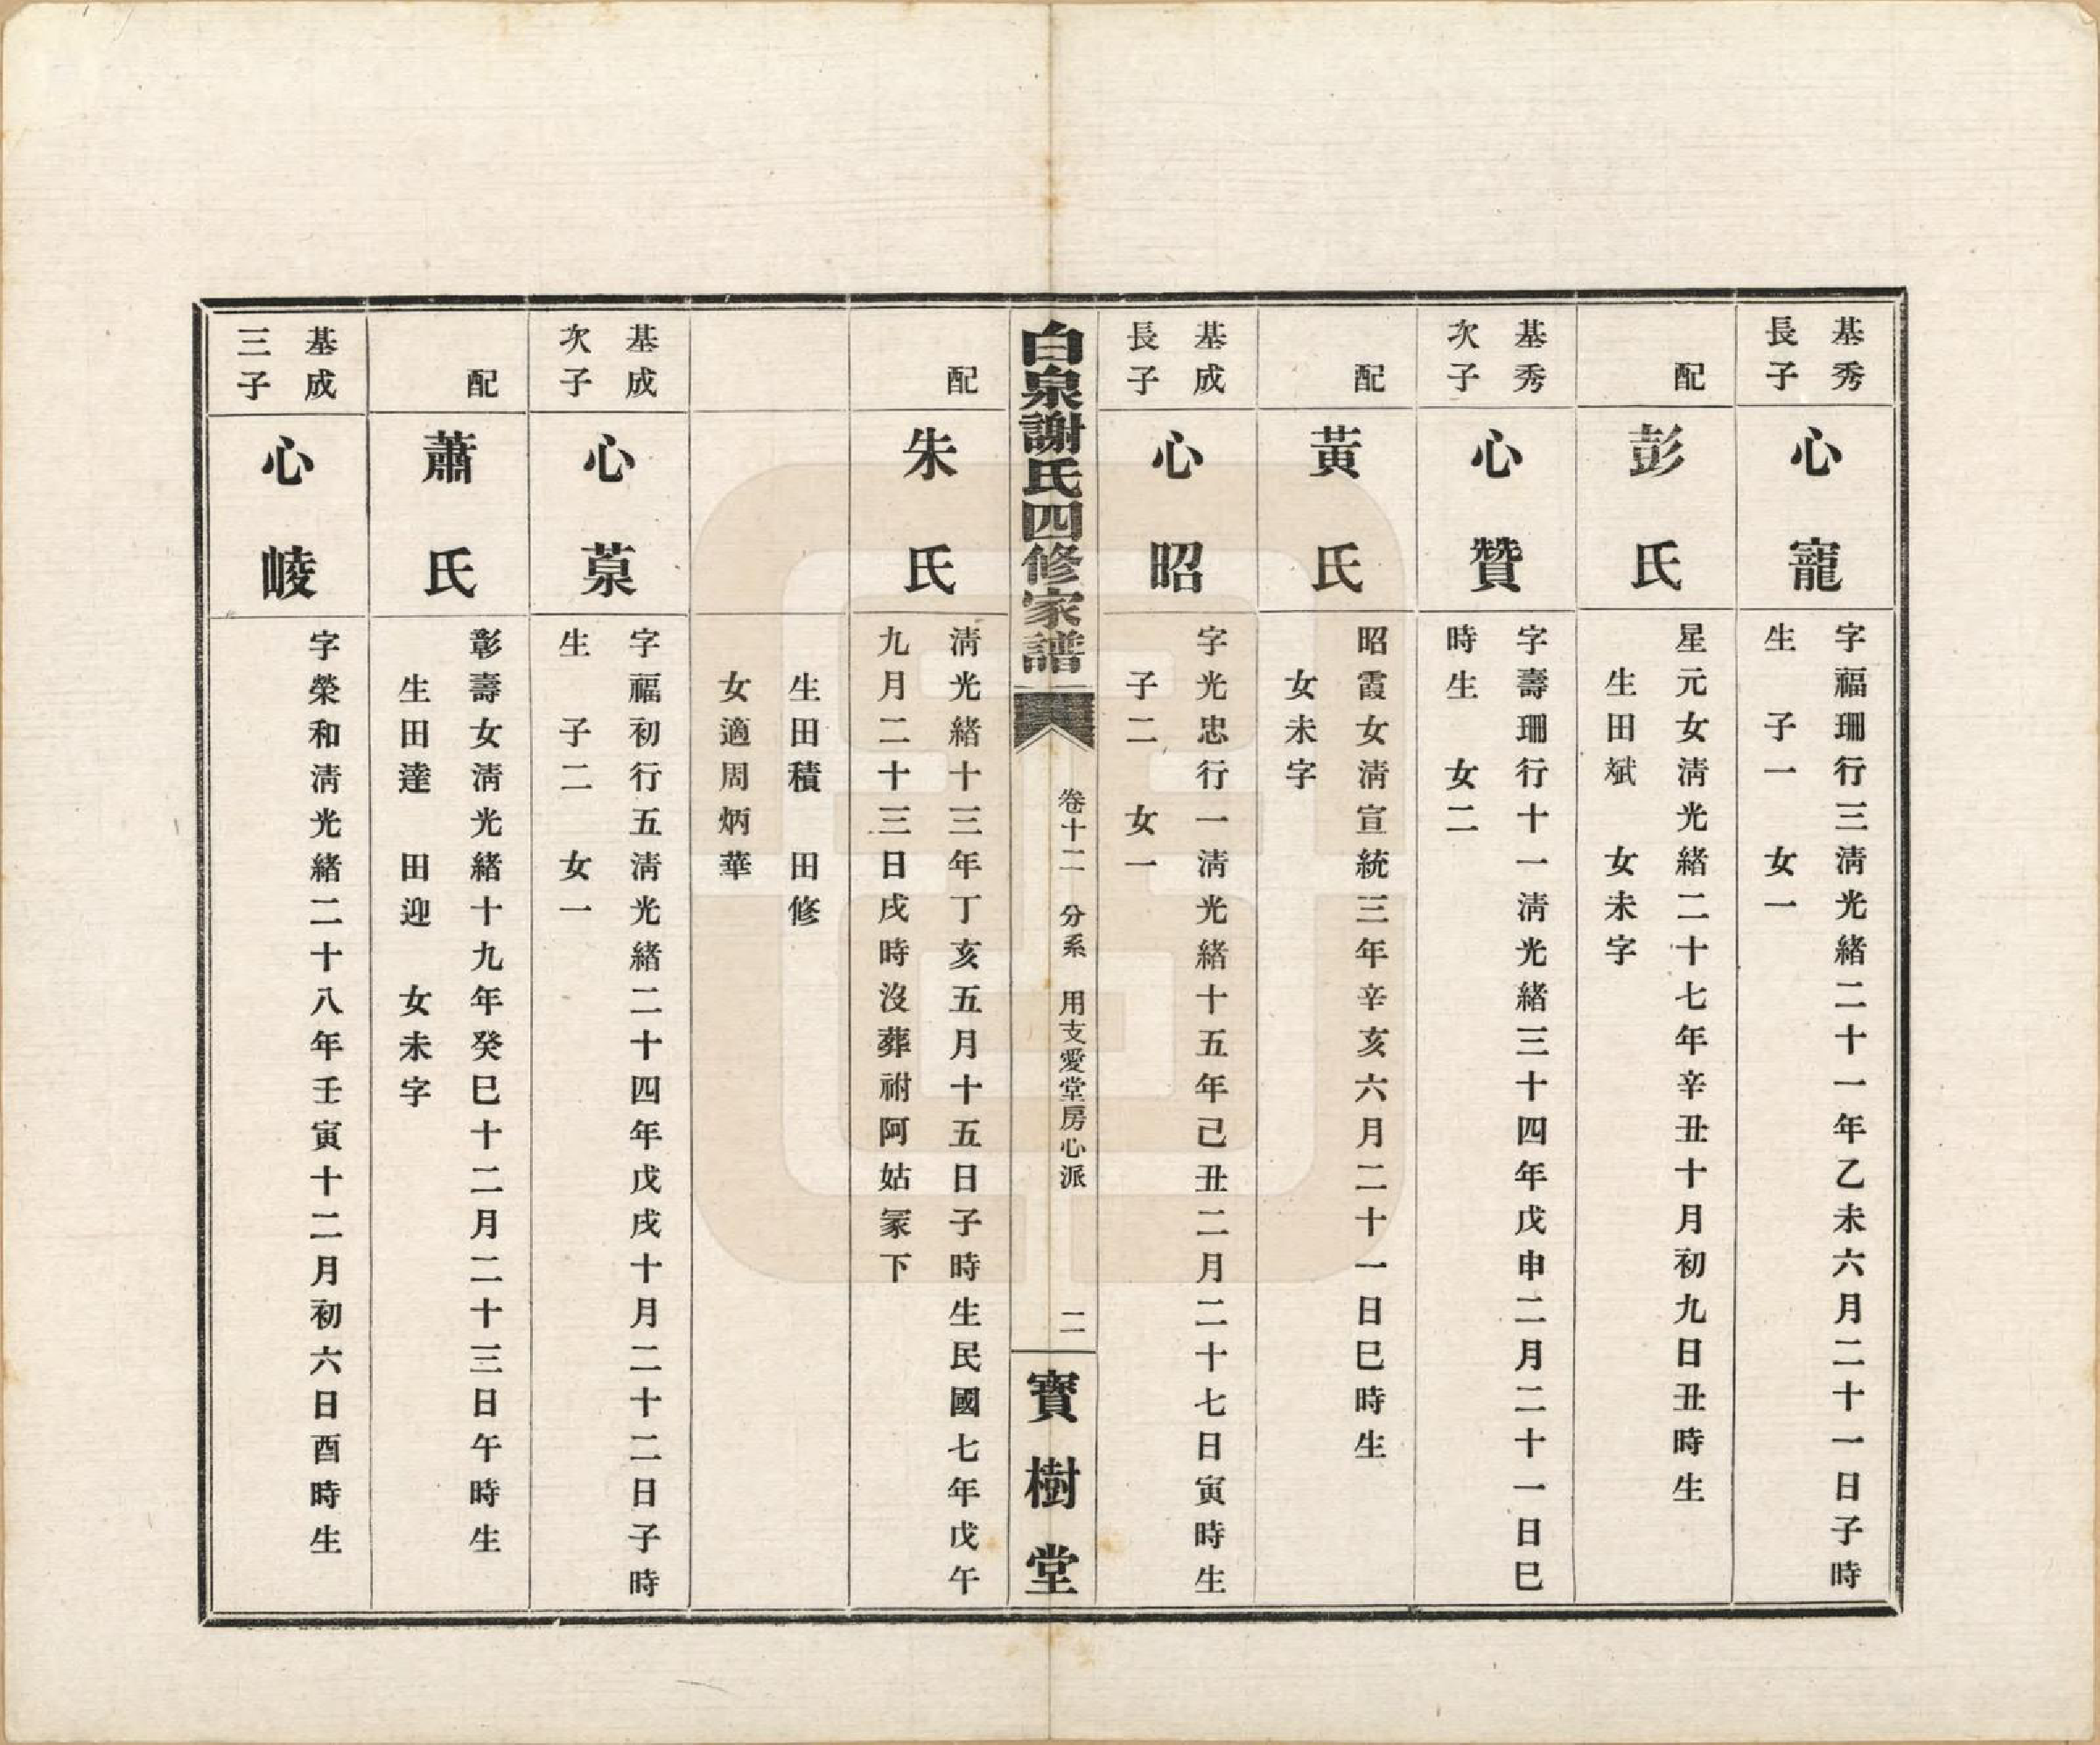 基秀
長子
心寵
字福珊行三淸光緒二十一年乙未六月二十一日子時
生　子一　女一
配
彭氏
星元女淸光緒二十七年辛丑十月初九日丑時生
生田斌　女未字
基秀
次子
心贊
字壽珊行十一淸光緒三十四年戊申二月二十一日巳
時生　女二
配
黃氏
昭霞女淸宣統三年辛亥六月二十一日巳時生
女未字
基成
長子
心昭
字光忠行一淸光緒十五年己丑二月二十七日寅時生
子二　女一
白泉謝氏四修家譜
卷十二　分系　用支愛堂房心派
二
寶樹堂
配
朱氏
淸光緒十三年丁亥五月十五日子時生民國七年戊午
九月二十三日戌時沒葬祔阿姑冢下
生田積　田修
女適周炳華
基成
次子
心景
字福初行五淸光緒二十四年戊戌十月二十二日子時
生　子二　女一
配
蕭氏
彰壽女淸光緒十九年癸巳十二月二十三日午時生
生田達　田迎　女未字
基成
三子
心崚
字榮和淸光緒二十八年壬寅十二月初六日酉時生